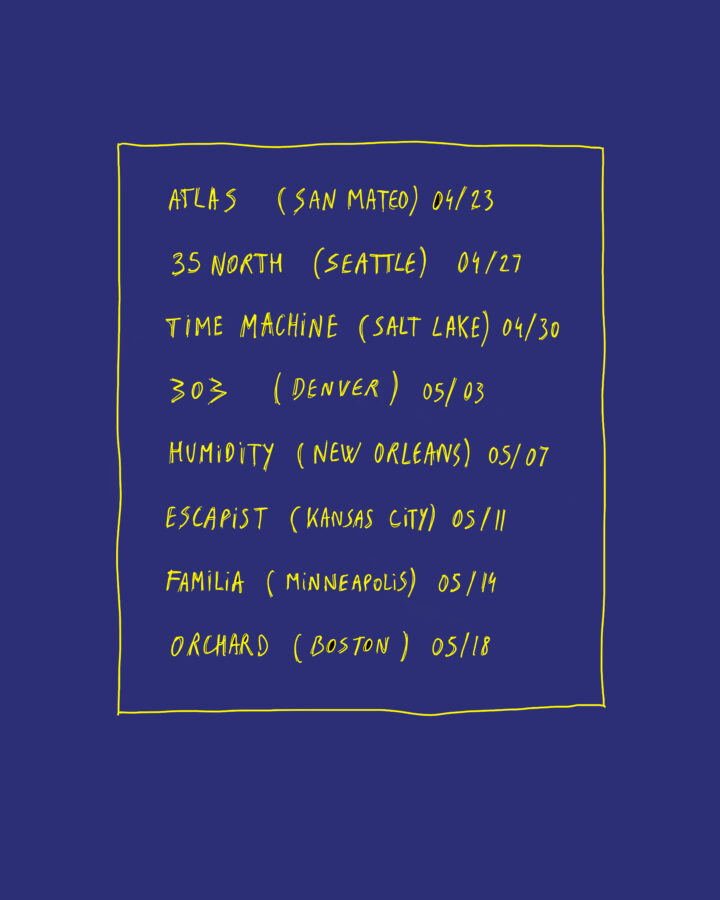 ATLAS (SAN MATEO) 04/23
35 NORTH (SEATTLE) 04/27
TIME MACHINE (SALT LAKE) 04/30
303 (DENVER) 05/03
HUMIDITY (NEW ORLEANS) 05/07
ESCAPIST (KANSAS CITY) 05/11
FAMILIA (MINNEAPOLIS) 05/14
ORCHARD (BOSTON) 05/18